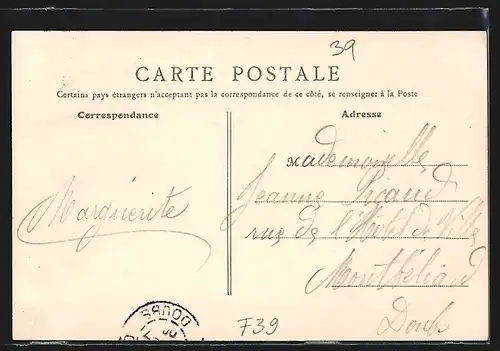 39
CARTE POSTALE
Certains pays étrangers n'acceptant pas la correspondance de ce côté, se renseigner à la Poste
Correspondance
Adresse
Mademoiselle
Jeanne Picaud
rue de l'Hôtel de Ville
Montbéliard
Doubs
Marguerite
DOUBS
F39